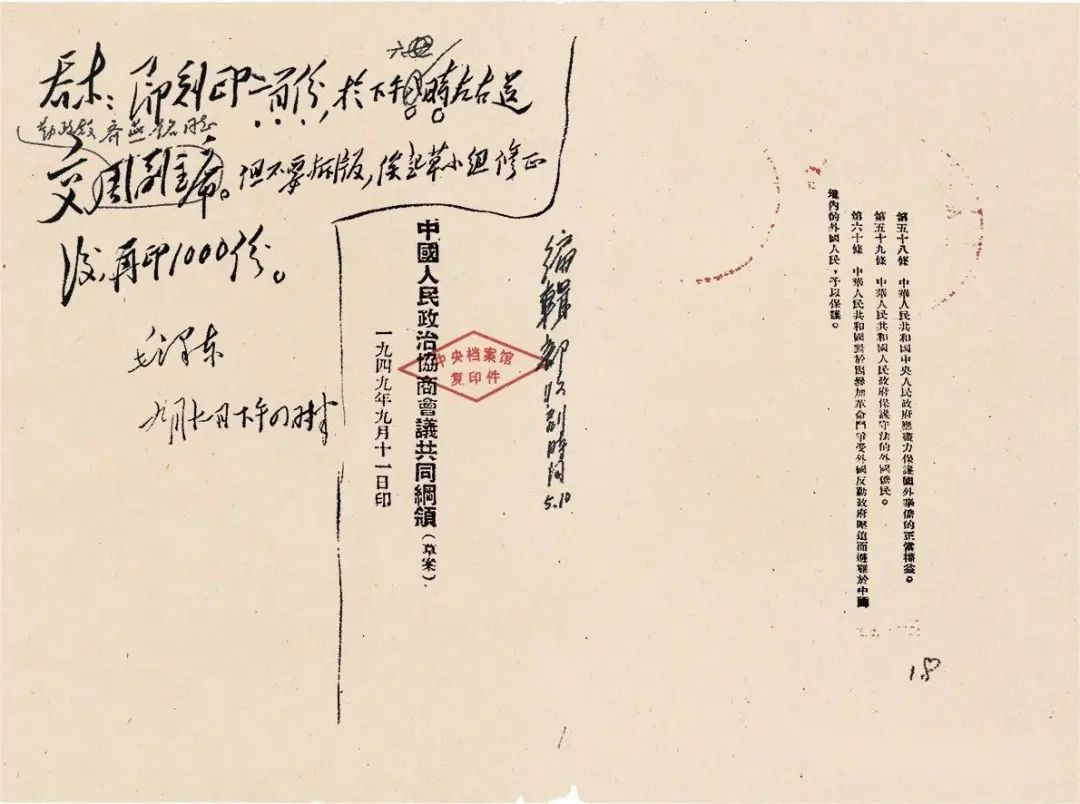 乔木：即刻印二百份，於下午六時左右送
勤政殿齊燕銘同志
交周副主席。但不要拆版，俟起草小组修正
後再印1000份。
毛泽东
九月 下午 时半
編輯部收到時间5.10
中國人民政治協商會議共同綱領（草案）
一九四九年九月十一日印
中央档案馆
复印件
第五十八條　中華人民共和國中央人民政府應盡力保護國外華僑的正當權益。
第五十九條　中華人民共和國人民政府保護守法的外國僑民。
第六十條　中華人民共和國對於因參加革命鬥爭受外國反動政府壓迫而避難於中國
境內的外國人民，予以保護。
18